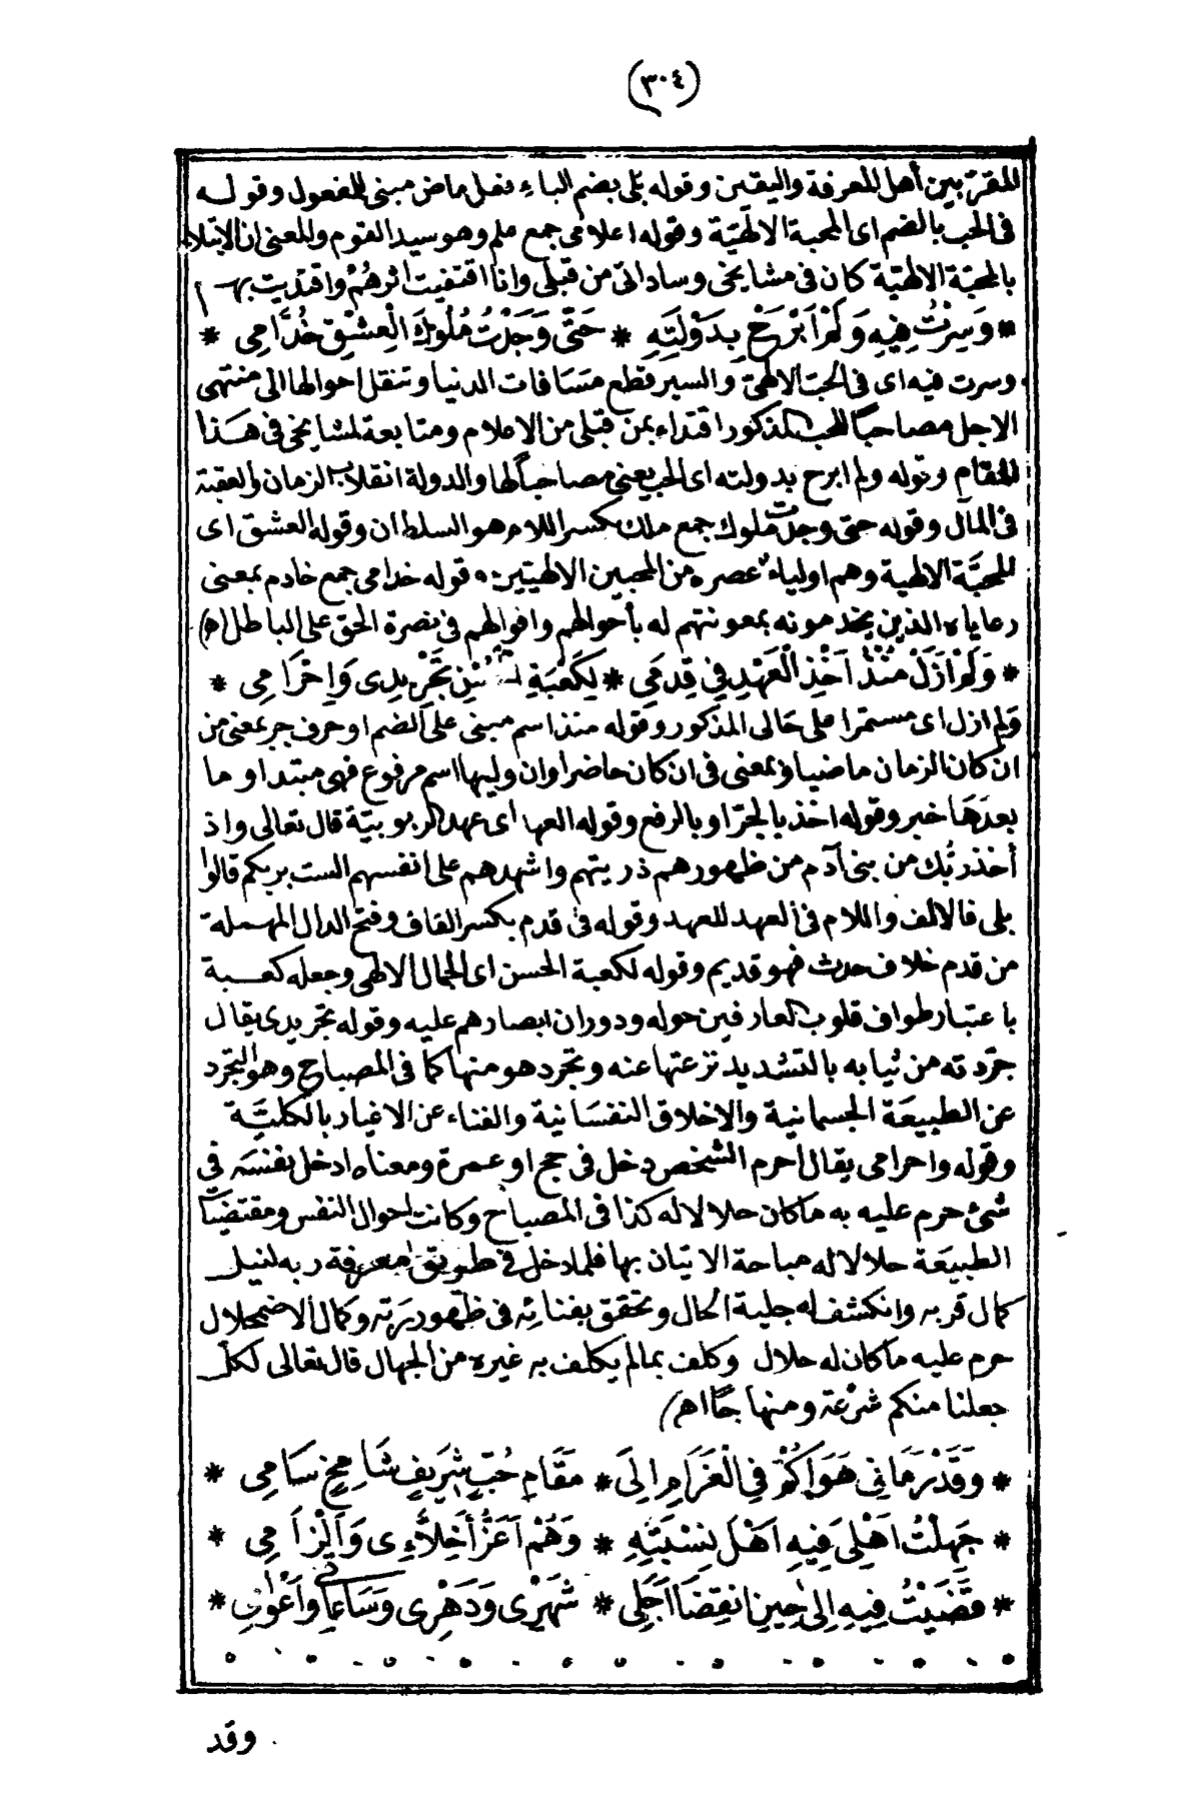 (٣٠٤)
المقربين أهل المعرفة واليقين وقوله بلى بضم الباء فعل ماض مبنى للمفعول وقوله
فى الحب بالضم اى المحبة الالهية وقوله اعلامى جمع علم وهو سيد القوم والمعنى ان الابتلا
بالمحبة الالهية كان فى مشايخى وساداتى من قبلى وانا اقتفيت اثرهُمْ واقتديت بهم
* وَسِرْتُ فِيهِ وَلَمْ اَبْرَحْ بِدَوْلَتِهِ * حَتَّى وَجَدْتُ مُلُوكَ الْعِشْقِ خُدَّامِى *
وسرت فيه اى فى الحب الالهىّ والسير قطع مسَافات الدنيا وتنقل احوالها الى منتهى
الاجل مصاحباً للحب المذكور اقتداء بمن قبلى من الاعلام ومتابعة لمشايخى فى هَذا
المقام وقوله ولم ابرح بدولته اى الحب يعنى مصاحباً لها والدولة انقلاب الزمان والعقبة
فى المآل وقوله حتى وجدت ملوك جمع ملك بكسر اللام هو السلطان وقوله العشق اى
المحبَّة الالهية وهم اولياء عصره من المحبين الالهيين وقوله خدامى جمع خادم بمعنى
رعاياه الذين يخدمونه بمعونتهم له بأحوالهم واقوالهم فى نصرة الحق على الباطل اه)
* وَلَمْ اَزَلْ مُنْذُ اَخْذِ الْعَهْدِ فِي قِدَمِي * لِكَعْبَةِ الحُسْنِ تَجْرِيدِى وَاِحْرَامِى *
ولم ازل اى مستمرا على حَالى المذكور وقوله منذ اسم مبنى على الضم او حرف جر بمعنى من
ان كان الزمان ماضيا وبمعنى فى ان كان حاضرا وان وليها اسم مرفوع فهى مبتدا وما
بعدَهَا خبر وقوله اخذ بالجرّ او بالرفع وقوله العهد اى عهد الربوبيّة قال تعالى واذ
أخذ ربُّك من بنى آدم من ظهورهم ذريتهم واشهدهم على انفسهم الست بربكم قالوا
بلى فالالف واللام فى العهد للعهد وقوله فى قدم بكسر القاف وفتح الدال المهملة
من قدم خلاف حدث فهو قديم وقوله لكعبة الحسن اى الجمال الالهى وجعله كعبة
باعتبار طواف قلوب العارفين حوله ودوران ابصارهم عليه وقوله تجريدى يقال
جرّدته من ثيابه بالتشديد نزعتها عنه وتجرد هو منها كما فى المصباح وهو التجرد
عن الطبيعَة الجسمانية والاخلاق النفسَانية والفناء عن الاغيار بالكليَّة
وقوله واحرامى يقال احرم الشخص دخل فى حج او عمرة ومعناه ادخل نفسَه فى
شئ حرم عليه به ماكان حلالا له كذا فى المصباح وكانت احوال النفس ومقتضيات
الطبيعَة حلالا له مباحة الاتيان بها فلما دخل فى طريق معرفة ربه لنيل
كمال قربه وانكشف له جلية الحال وتحقق بفنائه فى ظهور ربه وكمال الاضمحلال
حرم عليه ماكان له حلال وكلف بمالم يكلف به غيره من الجهال قال تعالى لكل
جعلنا منكم شرْعة ومنهاجًا اه)
* وَقَدْ رَمَانِى هَوَاكُمْ فِي الْغَرَامِ اِلَى * مَقَامِ حُبٍّ شَرِيفٍ شَامِخٍ سَامِى *
* جَهِلْتُ اَهْلِىَ فِيهِ اَهْلَ نِسْبَتِهِ * وَهُمْ اَعَزُّ أَخِلَّاءِى وَأَلْزَامِى *
* قَضَيْتُ فِيهِ اِلَى حِينِ انقِضَا اَجَلِى * شَهْرِى وَدَهْرِى وَسَاعَاتِى وَاَعْوَامِى *
وقد